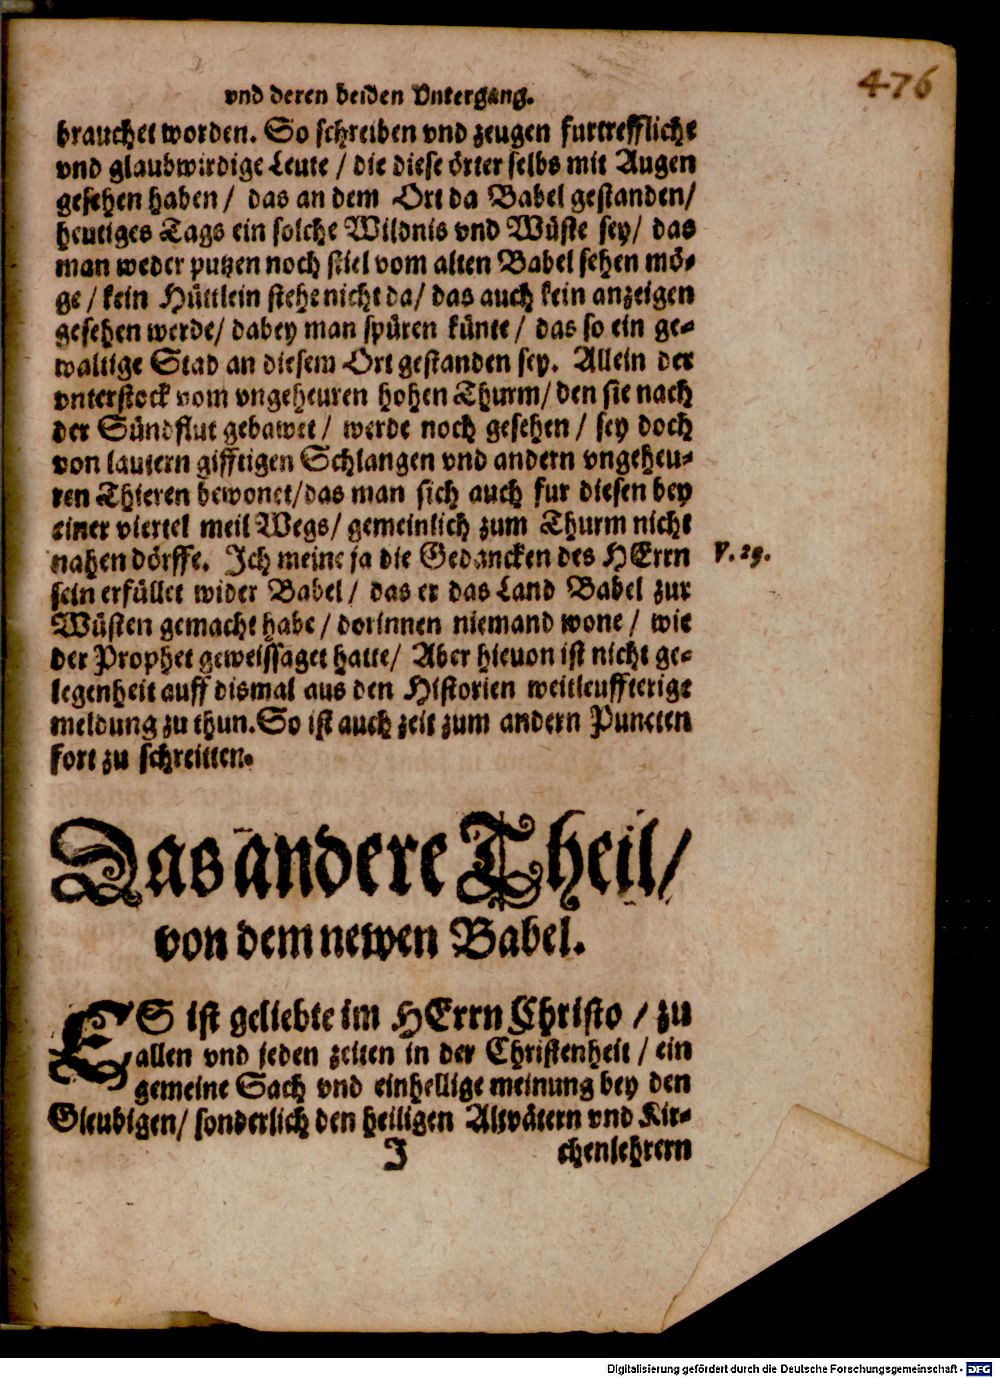 476
vnd deren beiden Vntergang.
brauchet worden. So schreiben vnd zeugen furtreffliche
vnd glaubwirdige Leute / die diese örter selbs mit Augen
gesehen haben / das an dem Ort da Babel gestanden/
heutiges Tags ein solche Wildnis vnd Wüste sey/ das
man weder putzen noch stiel vom alten Babel sehen mö-
ge / kein Hüttlein stehe nicht da/ das auch kein anzeigen
gesehen werde/ dabey man spüren künte / das so ein ge-
waltige Stad an diesem Ort gestanden sey. Allein der
vnterstock vom vngeheuren hohen Thurm/ den sie nach
der Sündflut gebawet / werde noch gesehen / sey doch
von lautern gifftigen Schlangen vnd andern vngeheu-
ren Thieren bewonet/das man sich auch fur diesen bey
einer viertel meil Wegs/ gemeinlich zum Thurm nicht
nahen dörffe. Ich meine ja die Gedancken des HErrn
V. 29.
sein erfüllet wider Babel / das er das Land Babel zur
Wüsten gemacht habe / dorinnen niemand wone / wie
der Prophet geweissaget hatte/ Aber hieuon ist nicht ge-
legenheit auff dismal aus den Historien weitleuffterige
meldung zu thun. So ist auch zeit zum andern Puncten
fort zu schreitten.
Das andere Theil/
von dem newen Babel.
ES ist geliebte im HErrn Christo / zu
allen vnd jeden zeiten in der Christenheit / ein
gemeine Sach vnd einhellige meinung bey den
Gleubigen/ sonderlich den heiligen Altvätern vnd Kir-
J chenlehrern
Digitalisierung gefördert durch die Deutsche Forschungsgemeinschaft - DFG